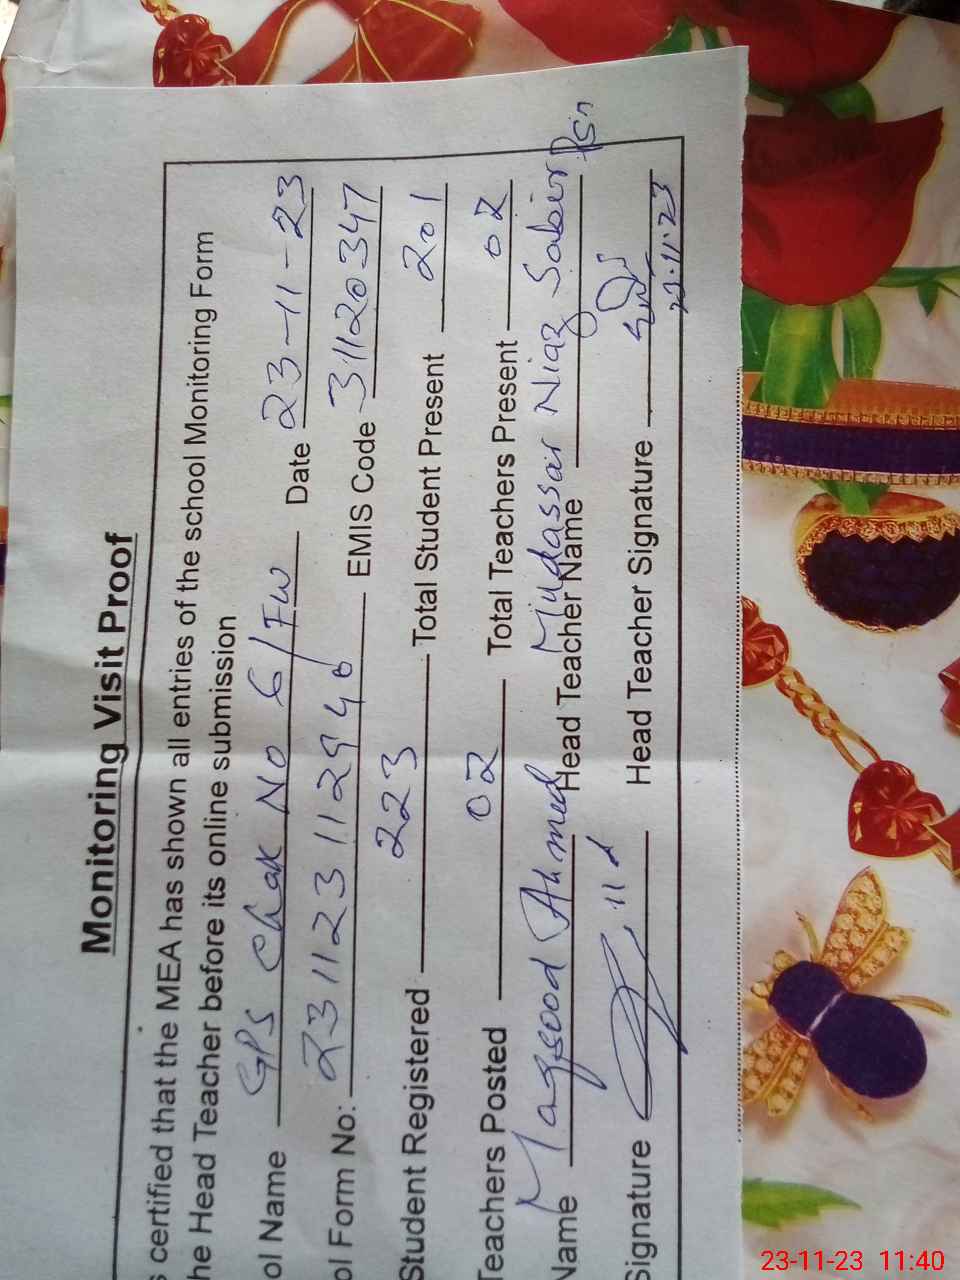 Monitoring Visit Proof
s certified that the MEA has shown all entries of the school Monitoring Form
he Head Teacher before its online submission
ol Name GPS Chak No 6/FW Date 23-11-23
ol Form No: 231123112946 EMIS Code 31120347
Student Registered 223 Total Student Present 201
Teachers Posted 02 Total Teachers Present 02
Name Maqsood Ahmed Head Teacher Name Mudassar Niaz Sabir
Signature Head Teacher Signature
23.11.23
23-11-23 11:40